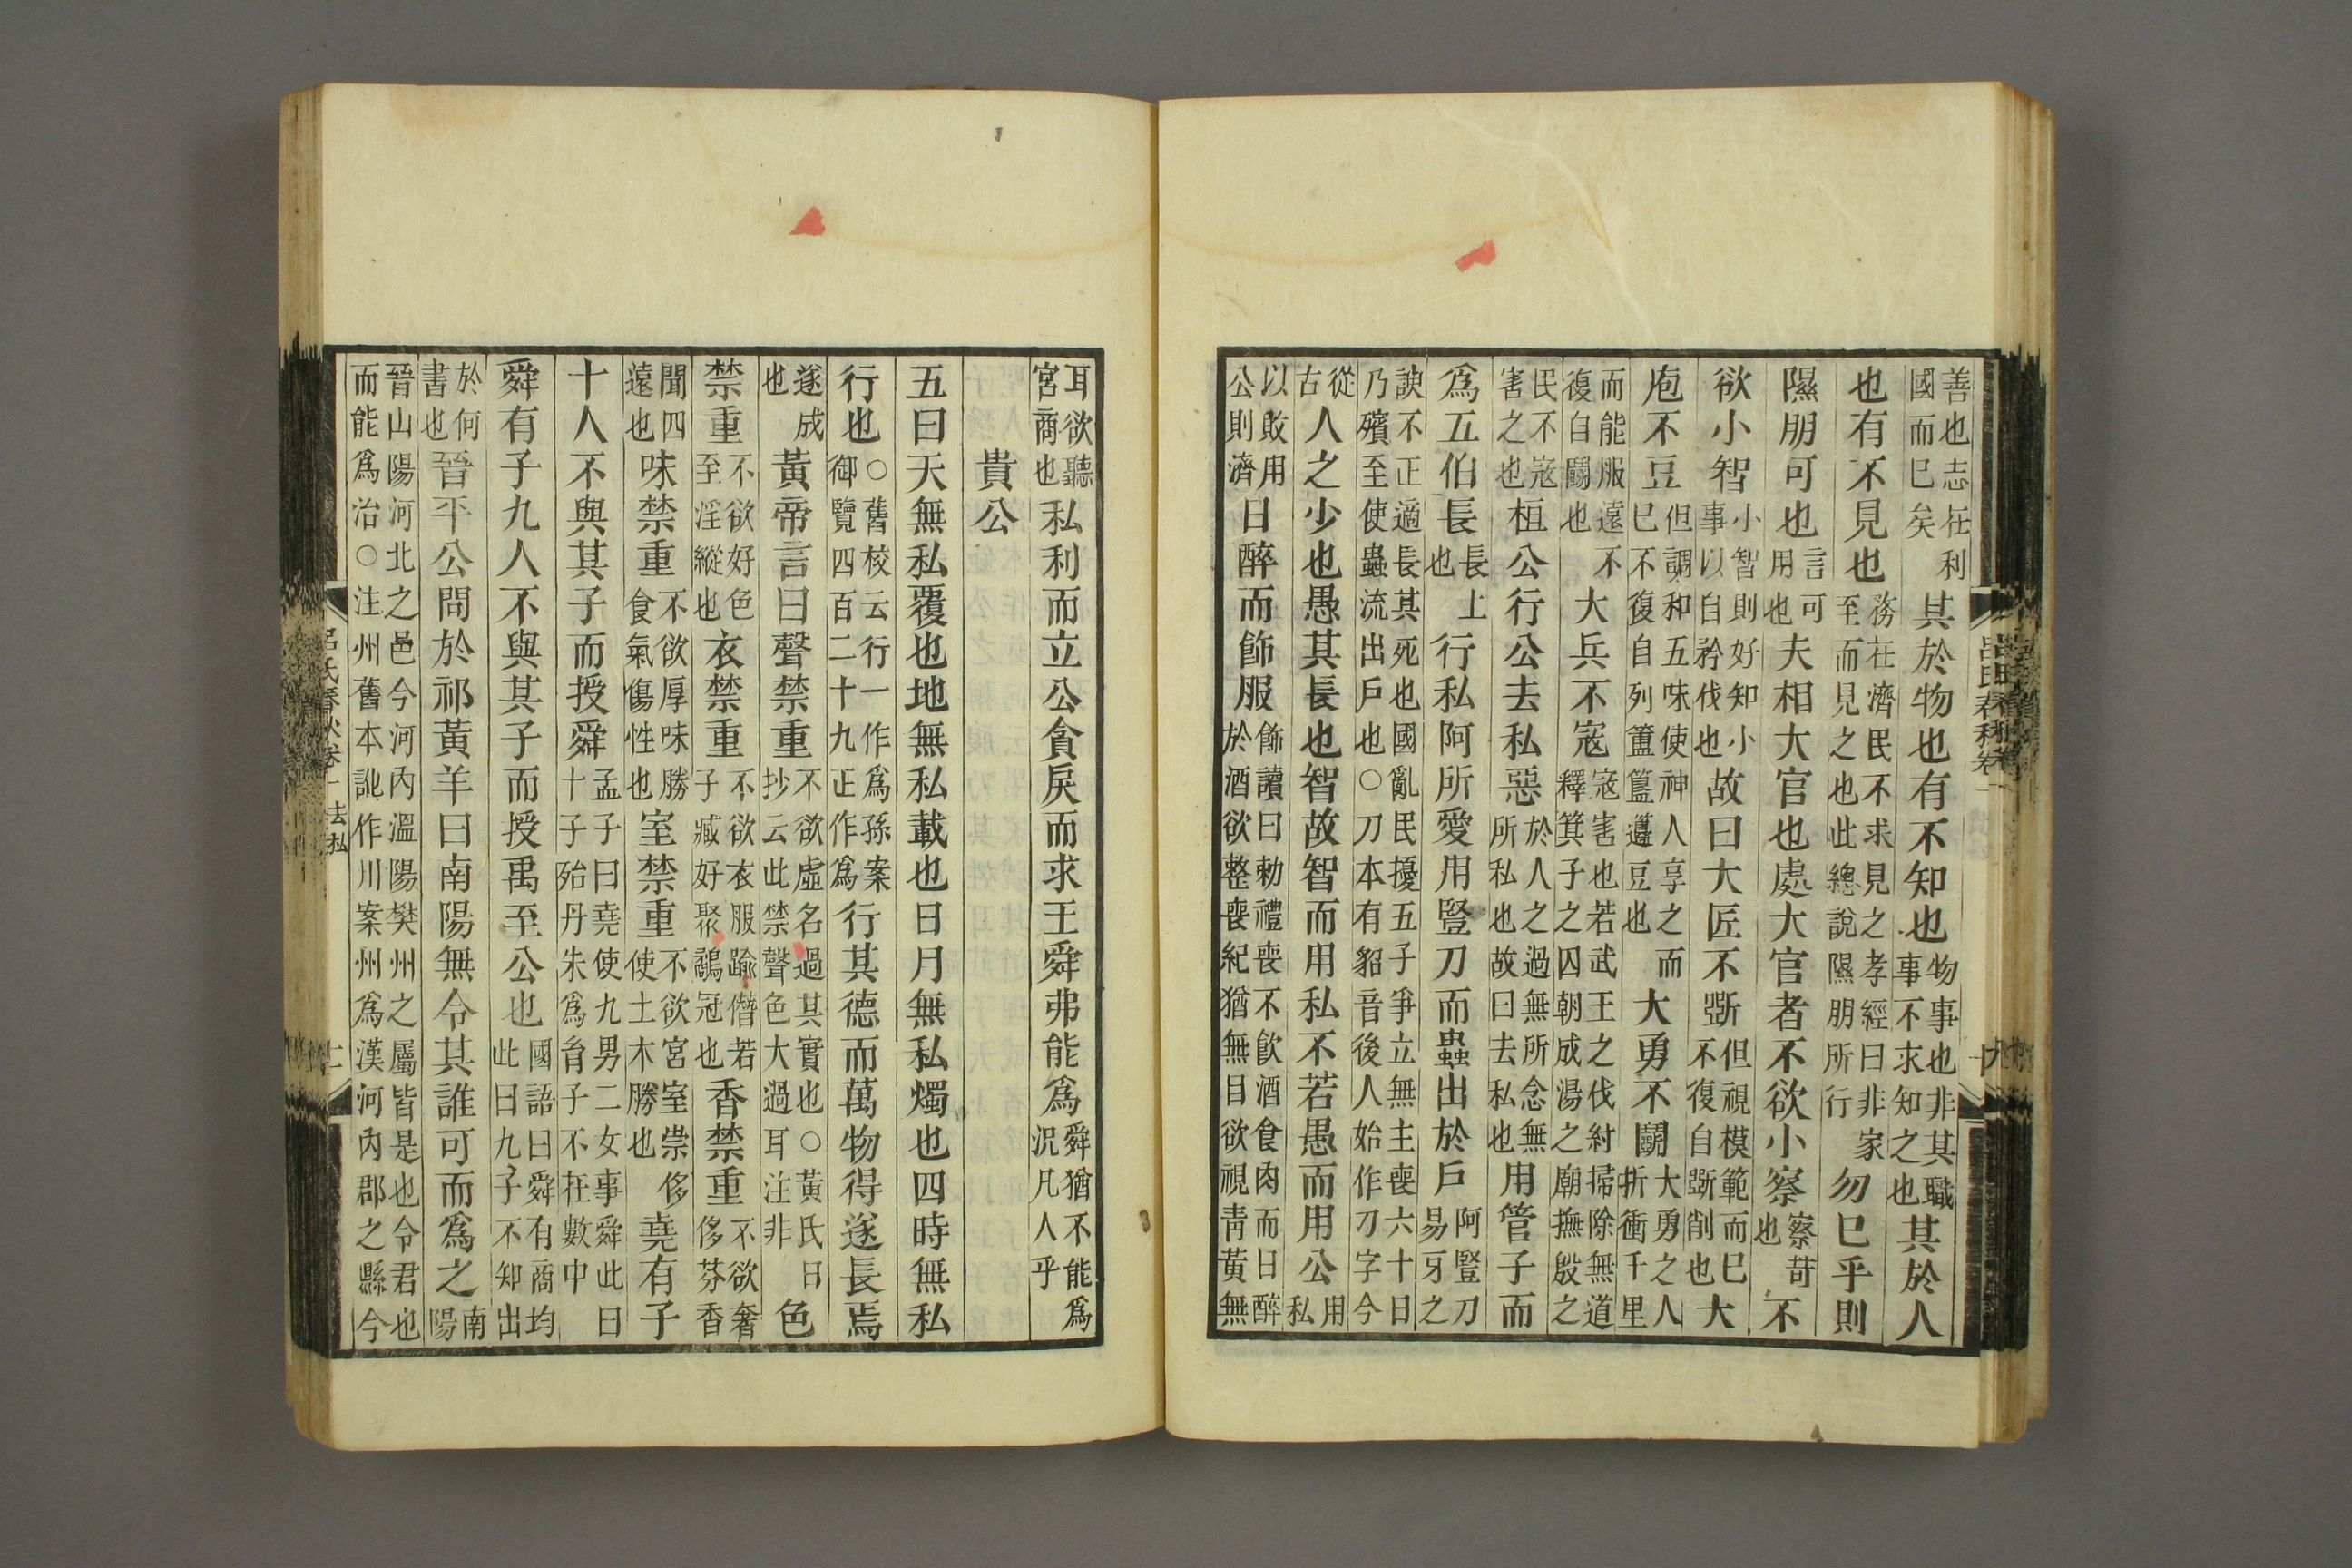 善也志在利國而已矣其於物也有不知也物事也非其職事不求知之也其於人
也有不見也務在濟民不求見之孝經曰非家至而見之也此總說隰朋所行勿已乎則
隰朋可也言可用也夫相大官也處大官者不欲小察察苛也不
欲小智小智則好知小事以自矜伐也故曰大匠不斲但視模範而已不復自斲削也大
庖不豆但調和五味使神人享之而已不復自列簠簋籩豆也大勇不鬭大勇之人折衝千里
而能服遠不復自鬭也大兵不寇寇害也若武王之伐紂掃除無道釋箕子之囚朝成湯之廟撫殷之
民不寇害之也桓公行公去私惡於人之過無所念無所私也故曰去私也用管子而
爲五伯長長上也行私阿所愛用豎刀而蟲出於戶阿豎刀易牙之
諛不正適長其死也國亂民擾五子爭立無主喪六十日乃殯至使蟲流出戶也○刀本有貂音後人始作刁字今
從古人之少也愚其長也智故智而用私不若愚而用公用私
以敗用公則濟日醉而飾服飾讀曰勅禮喪不飲酒食肉而日醉於酒欲整喪紀猶無目欲視青黃無
耳欲聽宮商也私利而立公貪戾而求王舜弗能爲舜猶不能爲況凡人乎
貴公
五曰天無私覆也地無私載也日月無私燭也四時無私
行也○舊校云行一作爲孫案御覽四百二十九正作爲行其德而萬物得遂長焉
遂成也黃帝言曰聲禁重不欲虛名過其實也○黃氏日抄云此禁聲色大過耳注非色
禁重不欲好色至淫縱也衣禁重不欲衣服踰僭若子臧好聚鷸冠也香禁重不欲奢侈芬香
聞四遠也味禁重不欲厚味勝食氣傷性也室禁重不欲宮室崇侈使土木勝也堯有子
十人不與其子而授舜孟子曰堯使九男二女事舜此曰十子殆丹朱爲胄子不在數中
舜有子九人不與其子而授禹至公也國語曰舜有商均此曰九子不知出
於何書也晉平公問於祁黃羊曰南陽無令其誰可而爲之南陽
晉山陽河北之邑今河內溫陽樊州之屬皆是也令君也而能爲治○注州舊本訛作川案州爲漢河內郡之縣今
呂氏春秋卷一 去私